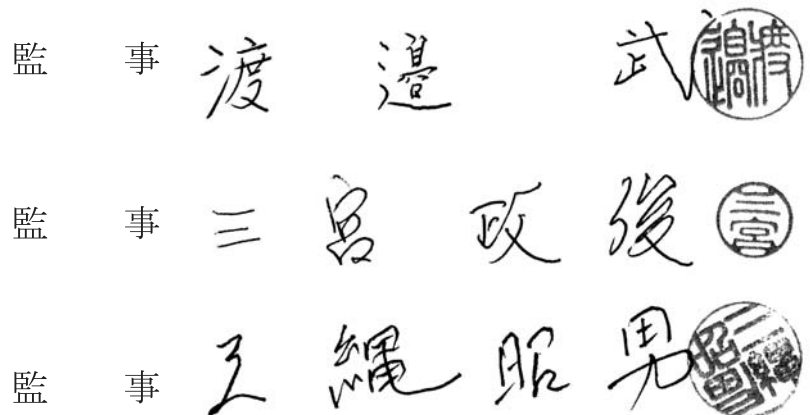 監 事 渡 邉 武 渡邉
監 事 三 宮 政 俊 三宮
監 事 三 縄 昭 男 三縄昭男